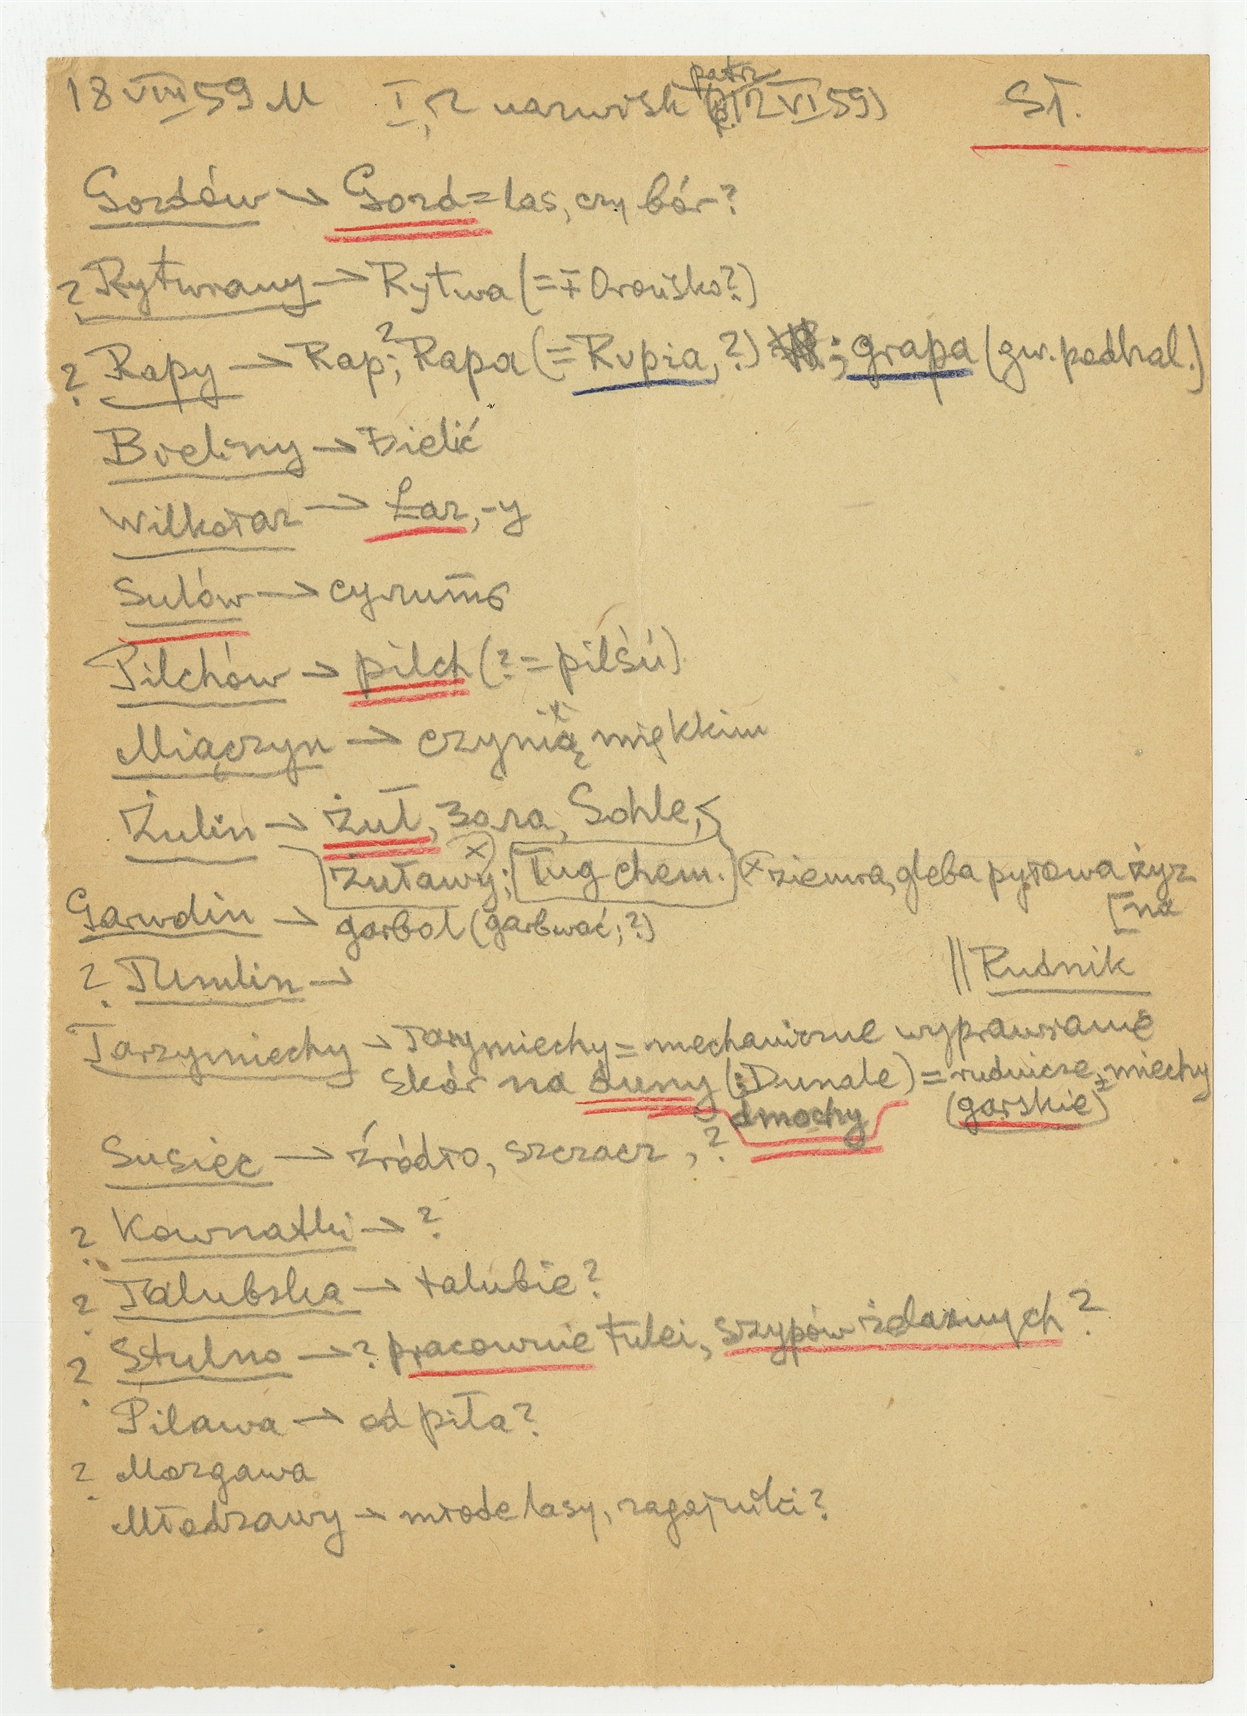 18 VIII 59 M I, z nazwisk patrz (p. 12 VI 59) St.
Gozdów → Gozd = las, czy bór?
? Rytwiany → Rytwa (= Orońsko?)
? Rapy → Rap?; Rapa (= Rupia, ?) ; grapa (gw. podhal.)
Bieliny → bielić
Wilkołaz → Łaz, -y
Sułów →
Pilchów → pilch (? = pilśń)
Miączyn → czynią miękkim
Żulin → Żuł, Zora, Sohle, <
Żuławy; (x) ług chem. (x ziemia, gleba pyłowa żyz
[na
Garwolin → garbol (garbować; ?)
? Tumlin →
|| Rudnik
Tarzymiechy → Tarzymiechy = mechaniczne wyprawianie
skór na duny (: Dunale) = rudnicze miechy
dmochy (garskie)
Susiec → źródło, szczacz, ?
? Kownatki → ?
? Tałubska → tałubie?
? Stulno → ? pracownie tulei, szypów żelaznych?
Pilawa → od piła?
? Mozgawa
Młodzawy → młode lasy, zagajniki?